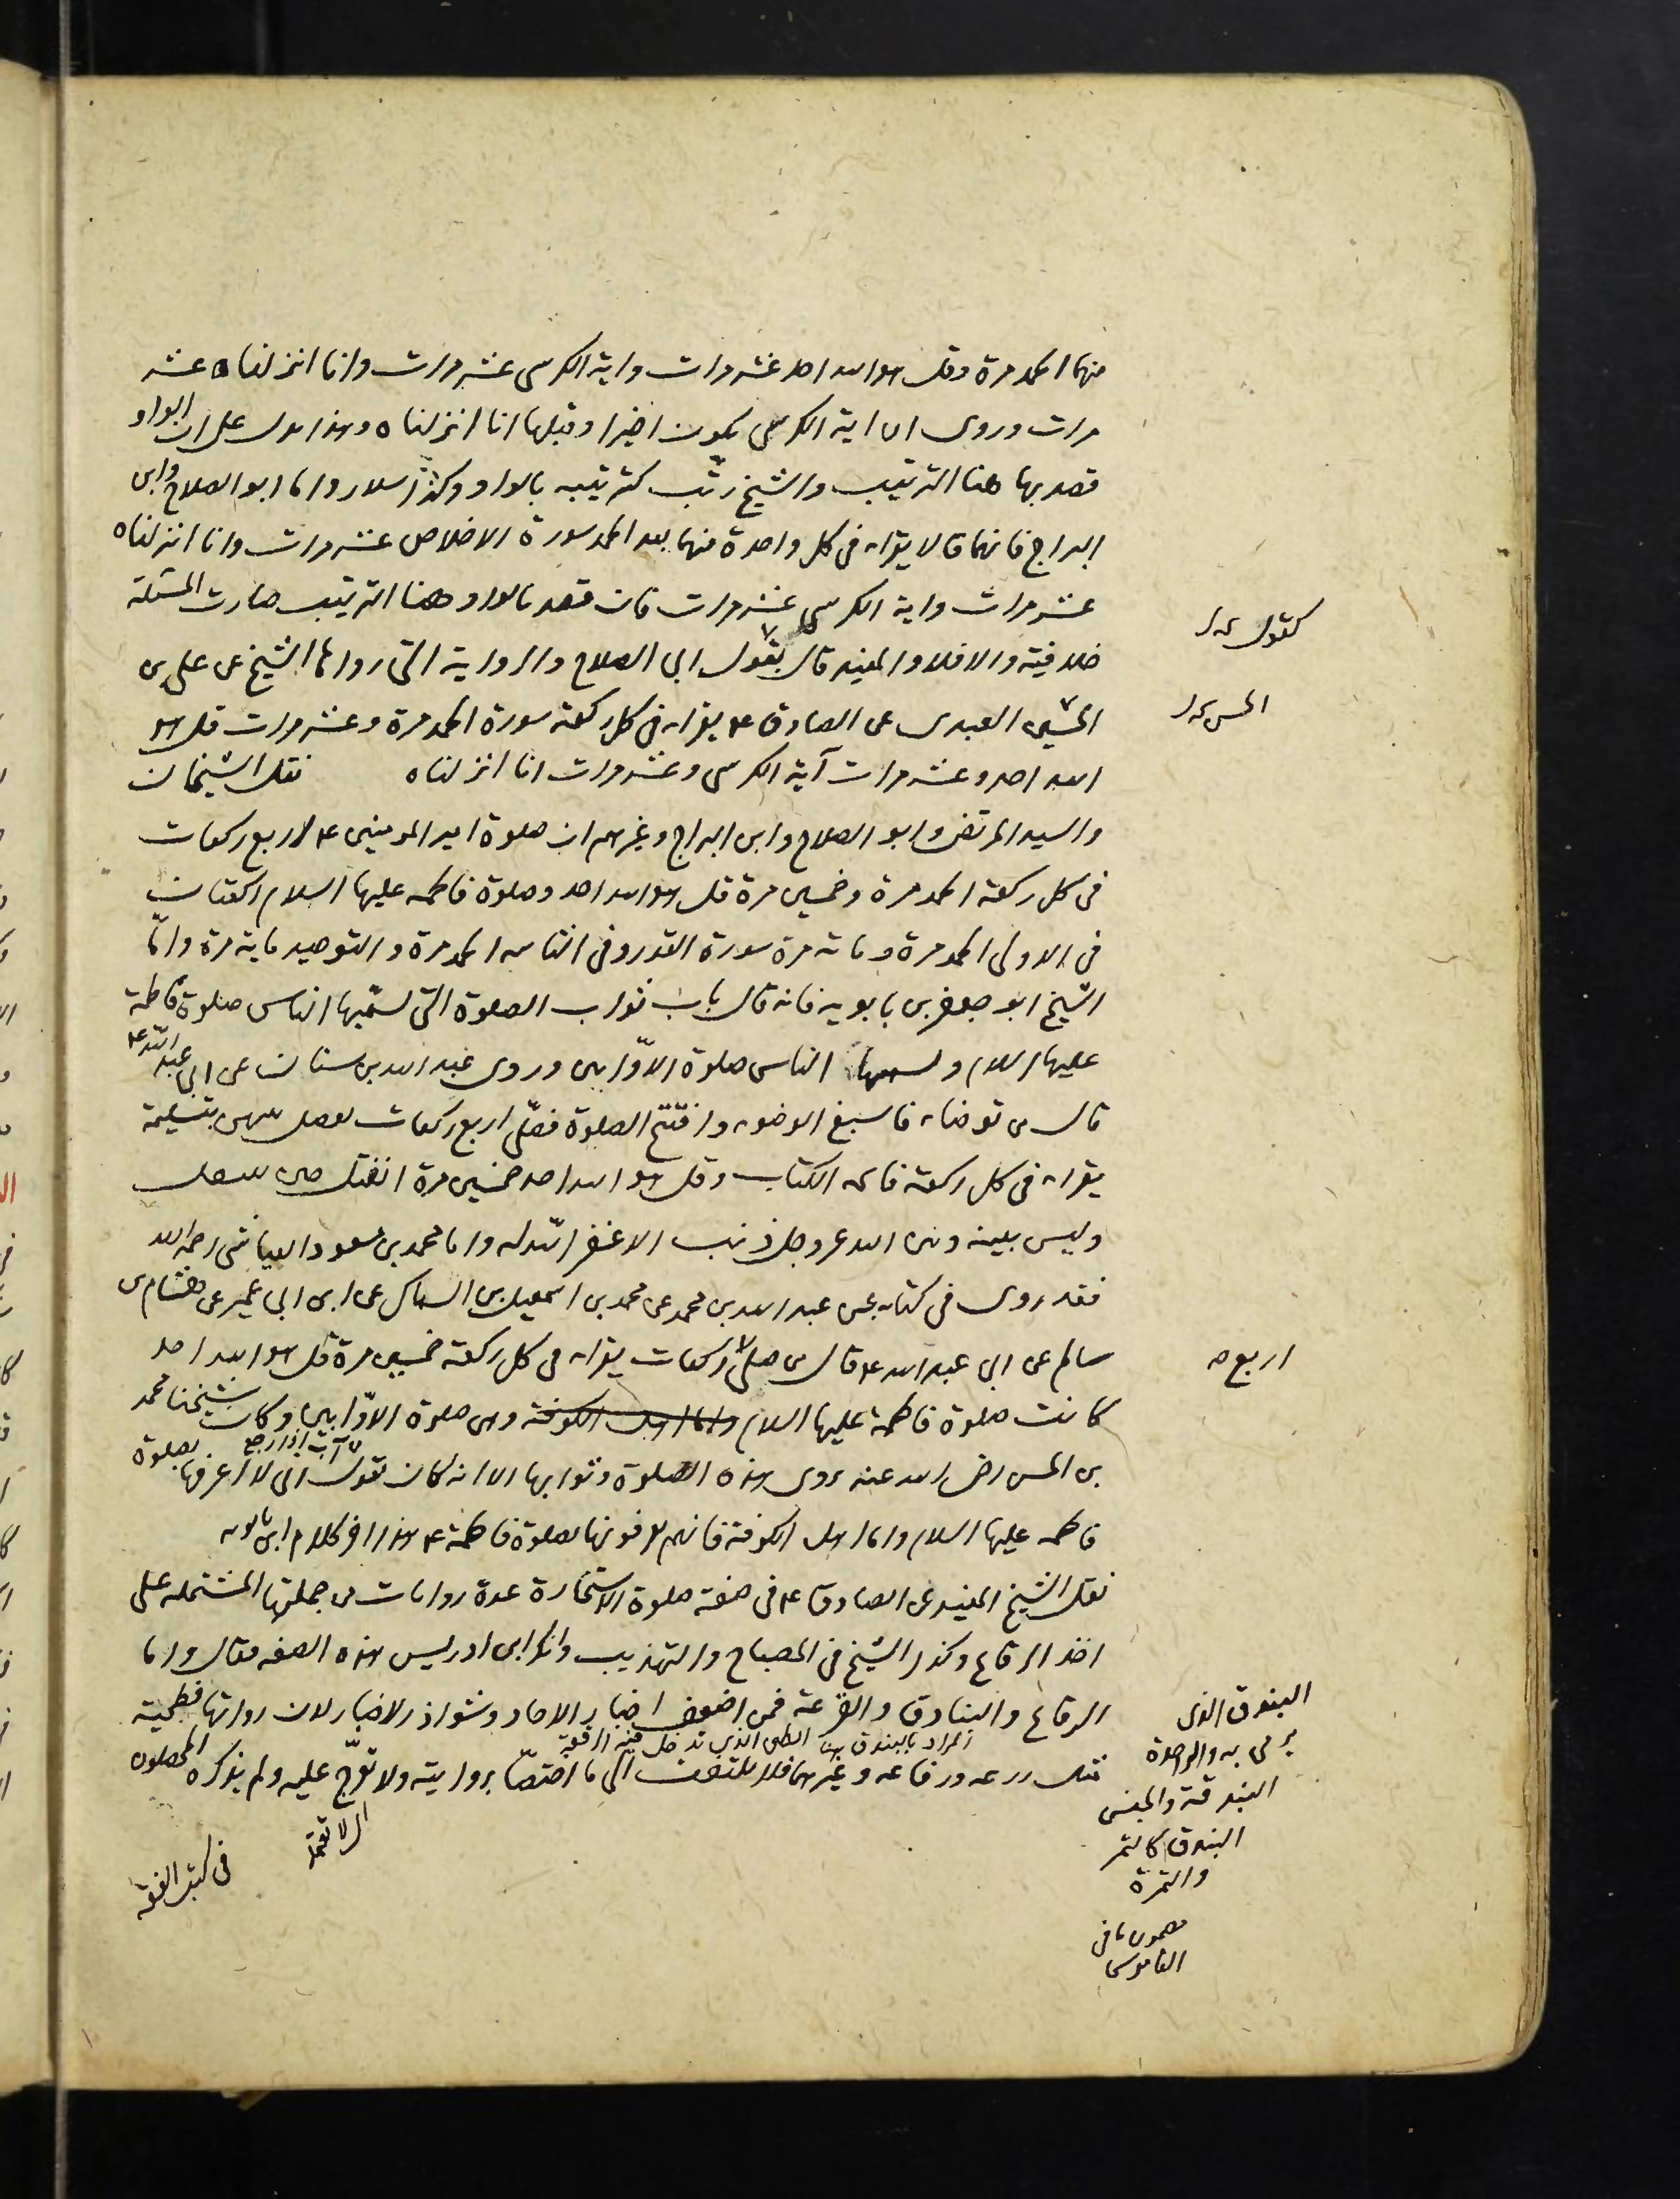 منهما الحمد مرة وقل هو الله احد عشر مرات واية الكرسى عشر مرات وانا انزلناه عشر
مرات وروى ان اية الكرسى يكون اخيرا وقبلها انا انزلناه وهذا يدل على ان الواو
قصد بها هنا الترتيب والشيخ رتب كترتيبه بالواو وكذا سلار واما ابو الصلاح وابن
البراج فانهما قالا يقراء فى كل واحدة منهما بعد الحمد سورة الاخلاص عشر مرات وانا انزلناه
عشر مرات واية الكرسى عشر مرات فان قصد بالواو هنا الترتيب صارت المسئلة
خلافية والا فلا والمفيد قال بقول ابى الصلاح والرواية التى رواها الشيخ عن على بن
الحسين العبدى عن الصادق ع يقراء فى كل ركعة سورة الحمد مرة وعشر مرات قل هو
الله احد وعشر مرات آية الكرسى وعشر مرات انا انزلناه نقل الشيخان
والسيد المرتضى وابو الصلاح وابن البراج وغيرهم ان صلوة امير المومنين ع اربع ركعات
فى كل ركعة الحمد مرة وخمسين مرة قل هو الله احد وصلوة فاطمه عليها السلام ركعتان
فى الاولى الحمد مرة ومائة مرة سورة القدر وفى الثانيه الحمد مرة والتوحيد ماية مرة وامّا
الشيخ ابو جعفر بن بابويه فانه قال باب ثواب الصلوة التى تسمّيها الناس صلوة فاطمة
عليها السلام وتسميها الناس صلوة الاوّابين وروى عبد الله بن سنان عن ابى عبد الله ع
قال من توضاء فاسبغ الوضوء وافتتح الصلوة فصلّى اربع ركعات يفصل بينهن بتسليمة
يقراء فى كل ركعة فاتحه الكتاب وقل هو الله احد خمسين مرة انفتل حين ينفتل
وليس بينه وبين الله عز وجل ذنب الا غفر الله له واما محمد بن مسعود العياشى رحمه الله
فقد روى فى كتابه عن عبد الله بن محمد عن محمد بن اسمعيل بن السماك عن ابن ابى عمير عن هشام بن
سالم عن ابى عبد الله ع قال من صلى ركعات يقراء فى كل ركعة خمسين مرة قل هو الله احد
كانت صلوة فاطمة عليها السلام واما اهل الكوفة وهى صلوة الاوّابين وكان شيخنا محمد
آب اذا رجع
بن الحسن رضى الله عنه يروى هذه الصلوة وثوابها الا انه كان يقول انى لا اعرفها بصلوة
فاطمه عليها السلام واما اهل الكوفة فانهم يعرفونها بصلوة فاطمة ع هذا اخر كلام ابن بابويه
نقل الشيخ المفيد عن الصادق ع فى صفة صلوة الاستخارة عدة روايات من جملتها المشتمله على
اخذ الرقاع وكذا الشيخ فى المصباح والتهذيب وانكر ابن ادريس هذه الصفه فقال واما
الرقاع والبنادق والقرعة فمن اضعف اخبار الاحاد وشواذ الاخبار لان رواتها فطحية
المراد بالبندق هنا الطين الذى تدخل فيه الرقعة
مثل زرعه ورفاعه وغيرهما فلا يلتفت الى ما اختصّا بروايته ولا تعرّج عليه ولم يذكره المحصلون
اى لا تعتمد
فى كتب الفقه
كقول
الحسن
اربع صح
البندق الذى
يرمى به والواحدة
البندقة والجنس
البندق كالتمر
والتمرة
مضمون ما فى
القاموس